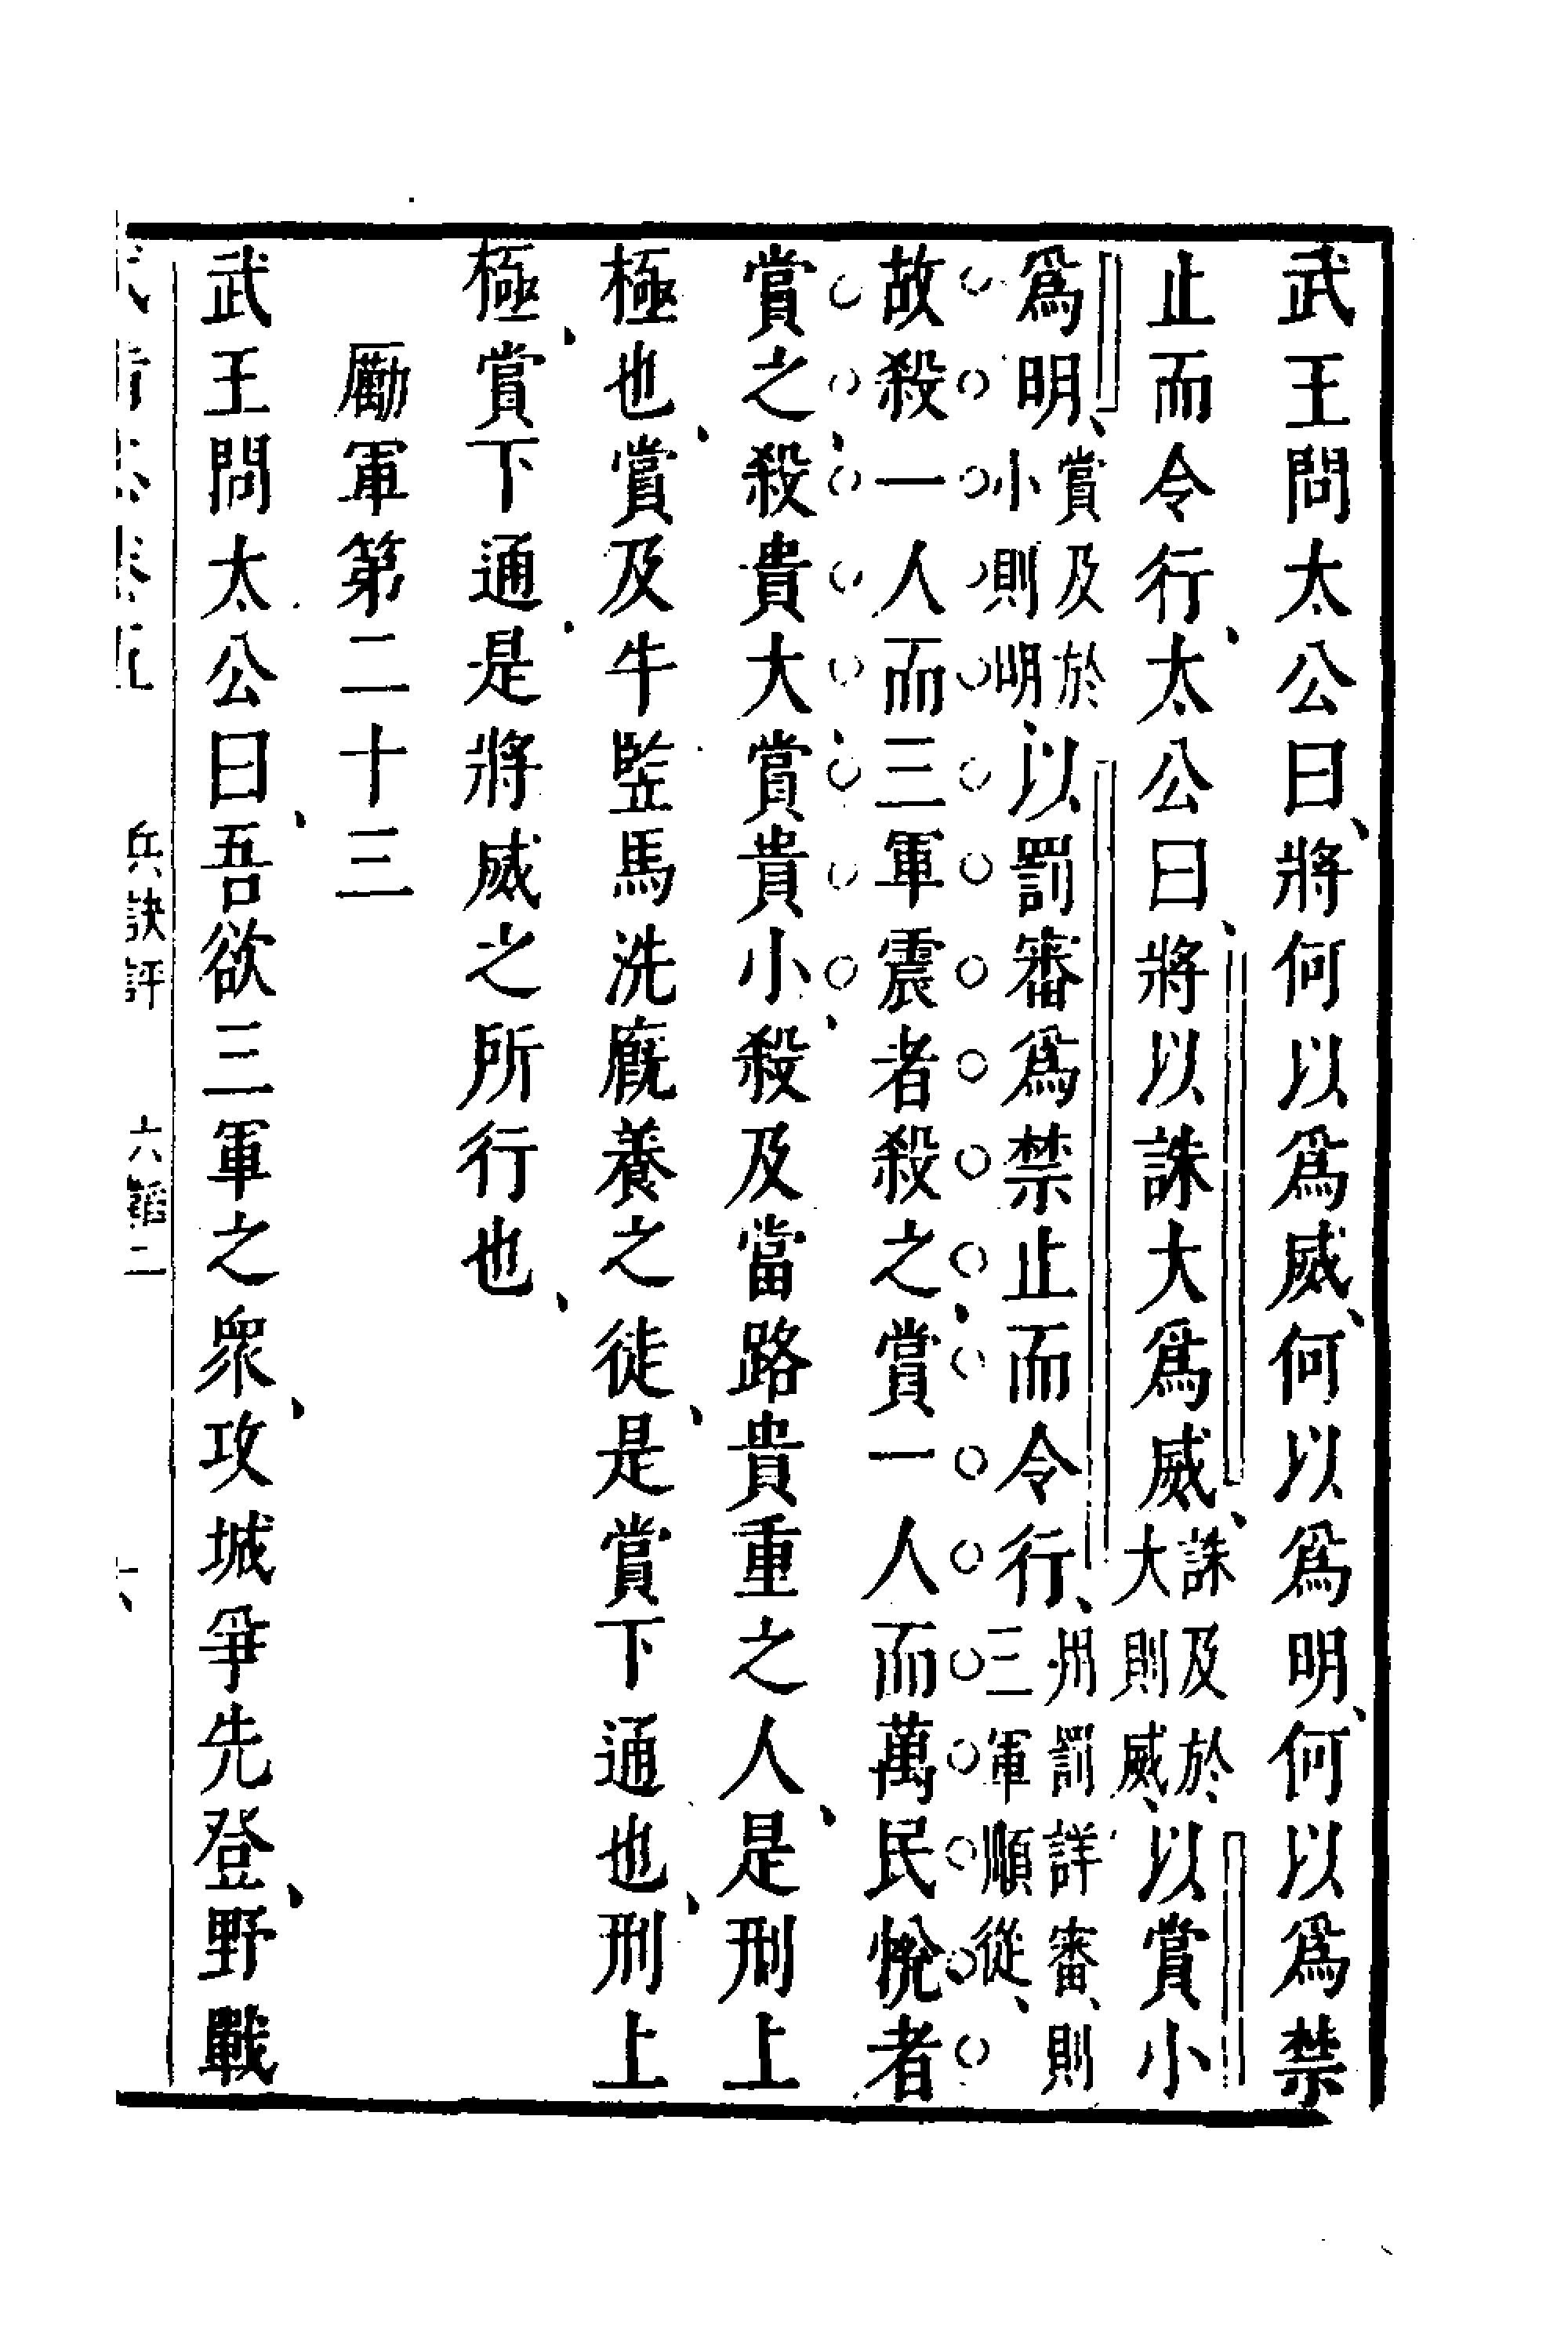 武王問太公曰、將何以爲威、何以爲明、何以爲禁
止而令行、太公曰、將以誅大爲威、誅及於大則威、以賞小
爲明、賞及於小則明、以罰審爲禁止而令行、用罰詳審、則三軍順從、
故殺一人而三軍震者殺之、賞一人而萬民悅者
賞之、殺貴大、賞貴小、殺及當路貴重之人、是刑上
極也、賞及牛豎馬洗廐養之徒、是賞下通也、刑上
極、賞下通、是將威之所行也、
勵軍第二十三
武王問太公曰、吾欲三軍之衆、攻城爭先登、野戰
兵訣評 六韜二